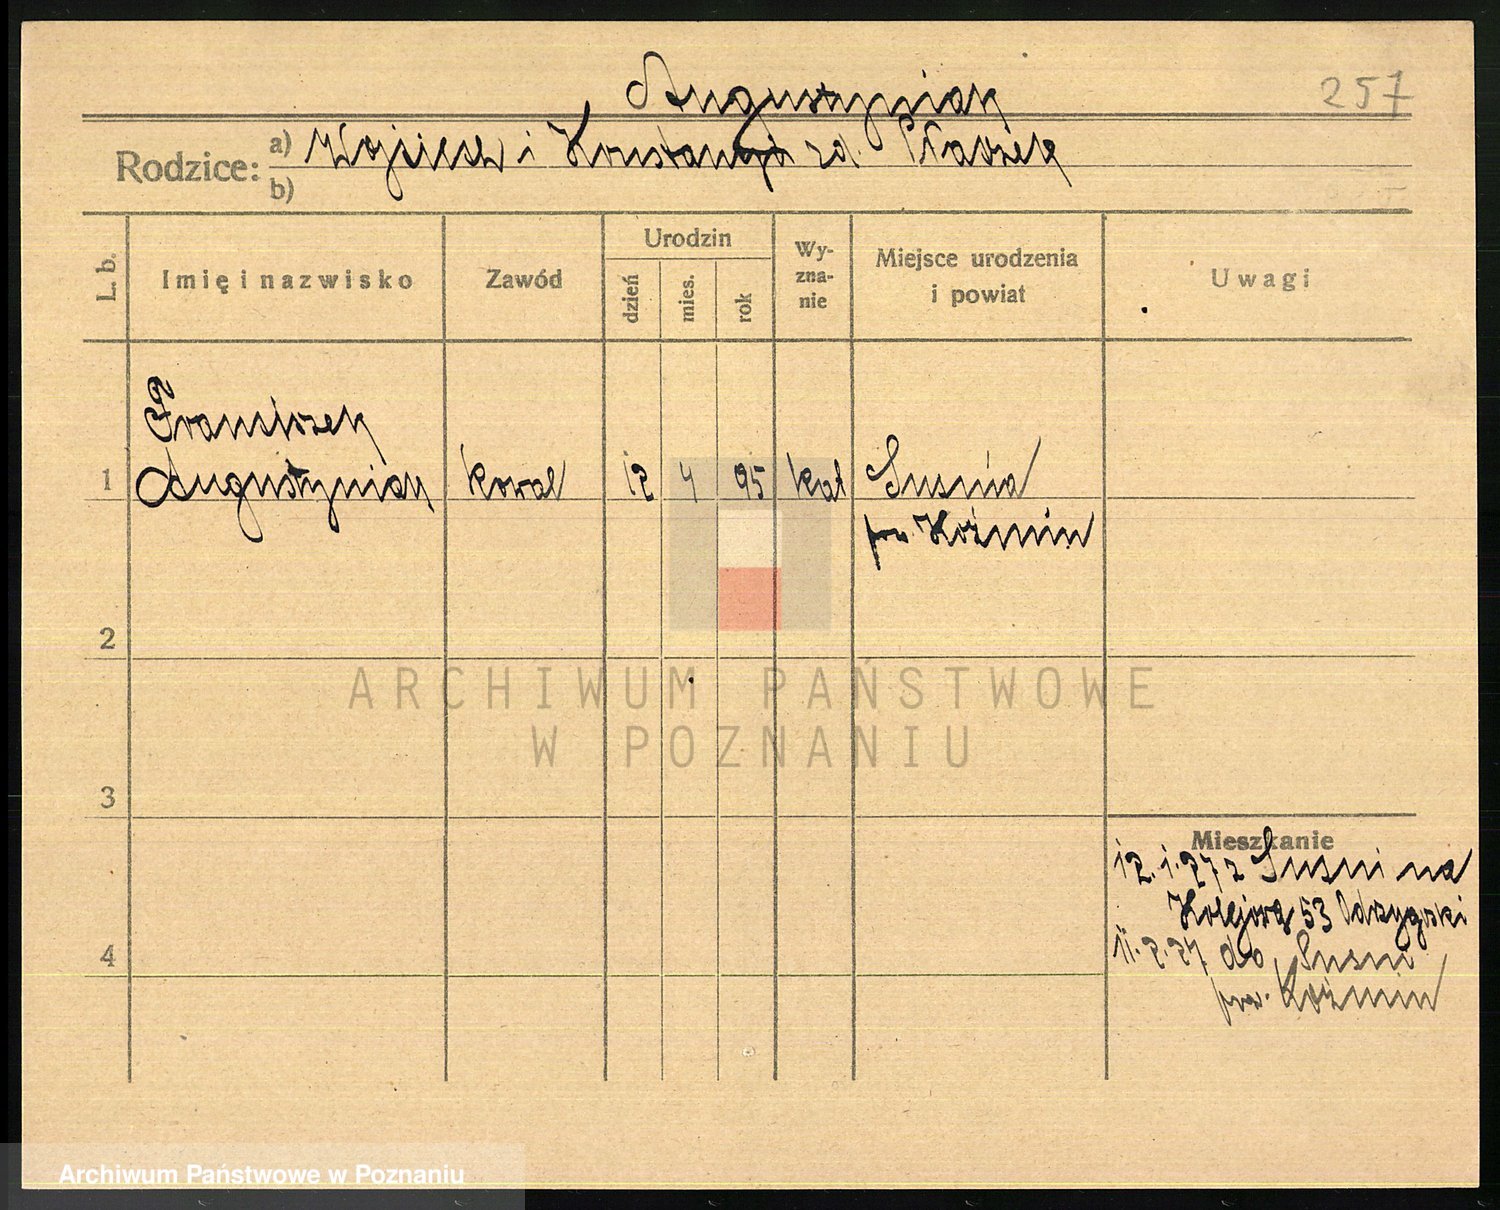 Augustyniak
257
Rodzice: a) Wojciech i Konstancja zd. Ptaszek
b)
L. b.
Imię i nazwisko
Zawód
Urodzin
dzień
mies.
rok
Wy-
zna-
nie
Miejsce urodzenia
i powiat
Uwagi
Franciszek
1 Augustyniak kowal 12 4 95 kat Suśnia
pow. Koźmin
2
3
4
Mieszkanie
12.1.27 z Suśni na
Kolejową 53
11.2.27 do Suśni
pow. Koźmin
ARCHIWUM PAŃSTWOWE
W POZNANIU
Archiwum Państwowe w Poznaniu